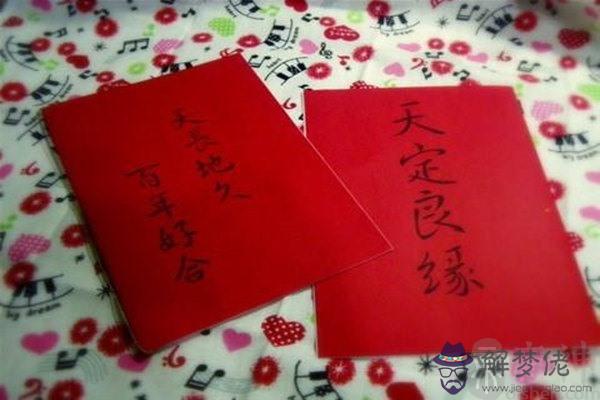 天長地久
百年好合
天定良缘
by dream
by dream
解梦佬
www.jiemenglao.com